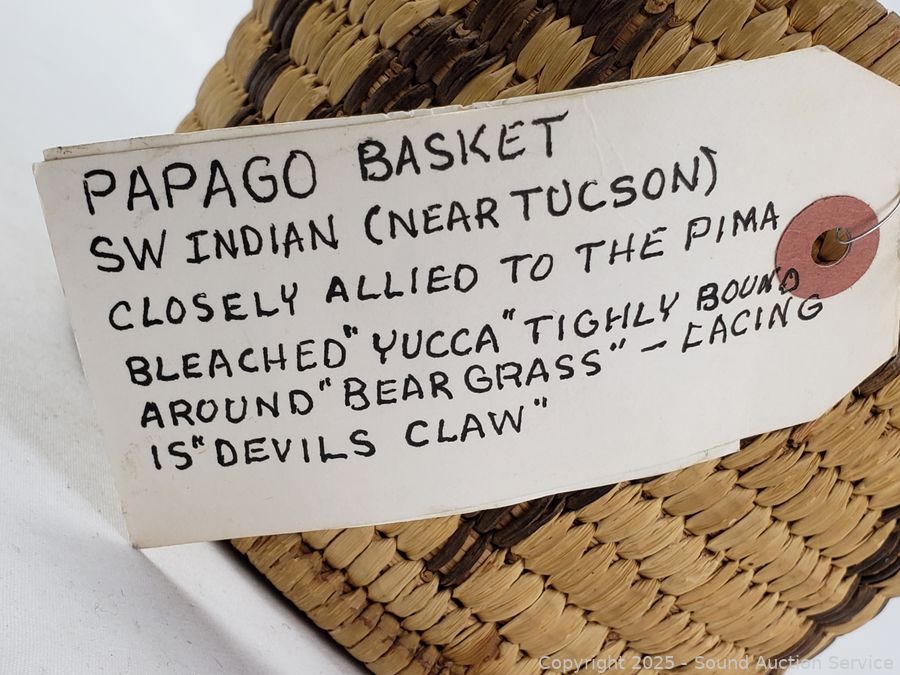 PAPAGO BASKET
SW INDIAN (NEAR TUCSON)
CLOSELY ALLIED TO THE PIMA
BLEACHED "YUCCA" TIGHLY BOUND
AROUND "BEAR GRASS" - LACING
IS "DEVILS CLAW"
Copyright 2025 - Sound Auction Service